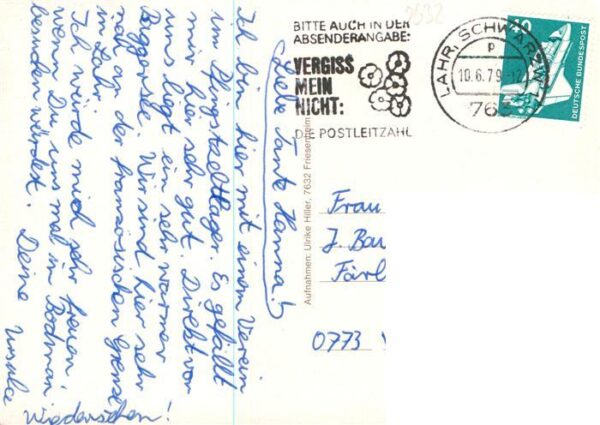 Liebe Tante Hanna!
Ich bin hier mit einem Verein
im Pfingstzeltlager. Es gefällt
mir hier sehr gut. Direkt vor
uns liegt ein sehr warmer
Baggersee. Wir sind hier sehr
nah an der französischen Grenze
in Lahr.
Ich würde mich sehr freuen,
wenn Du uns mal in Bodman
besuchen würdest. Deine Ursula
Wiedersehen!
BITTE AUCH IN DER
ABSENDERANGABE:
VERGISS
MEIN
NICHT:
DIE POSTLEITZAHL
LAHR, SCHWARZW
p
10.6.79-12
763
40
DEUTSCHE BUNDESPOST
7632
Aufnahmen: Ulrike Hiller, 7632 Friesenheim
Frau
J. Bau
Färl
0773